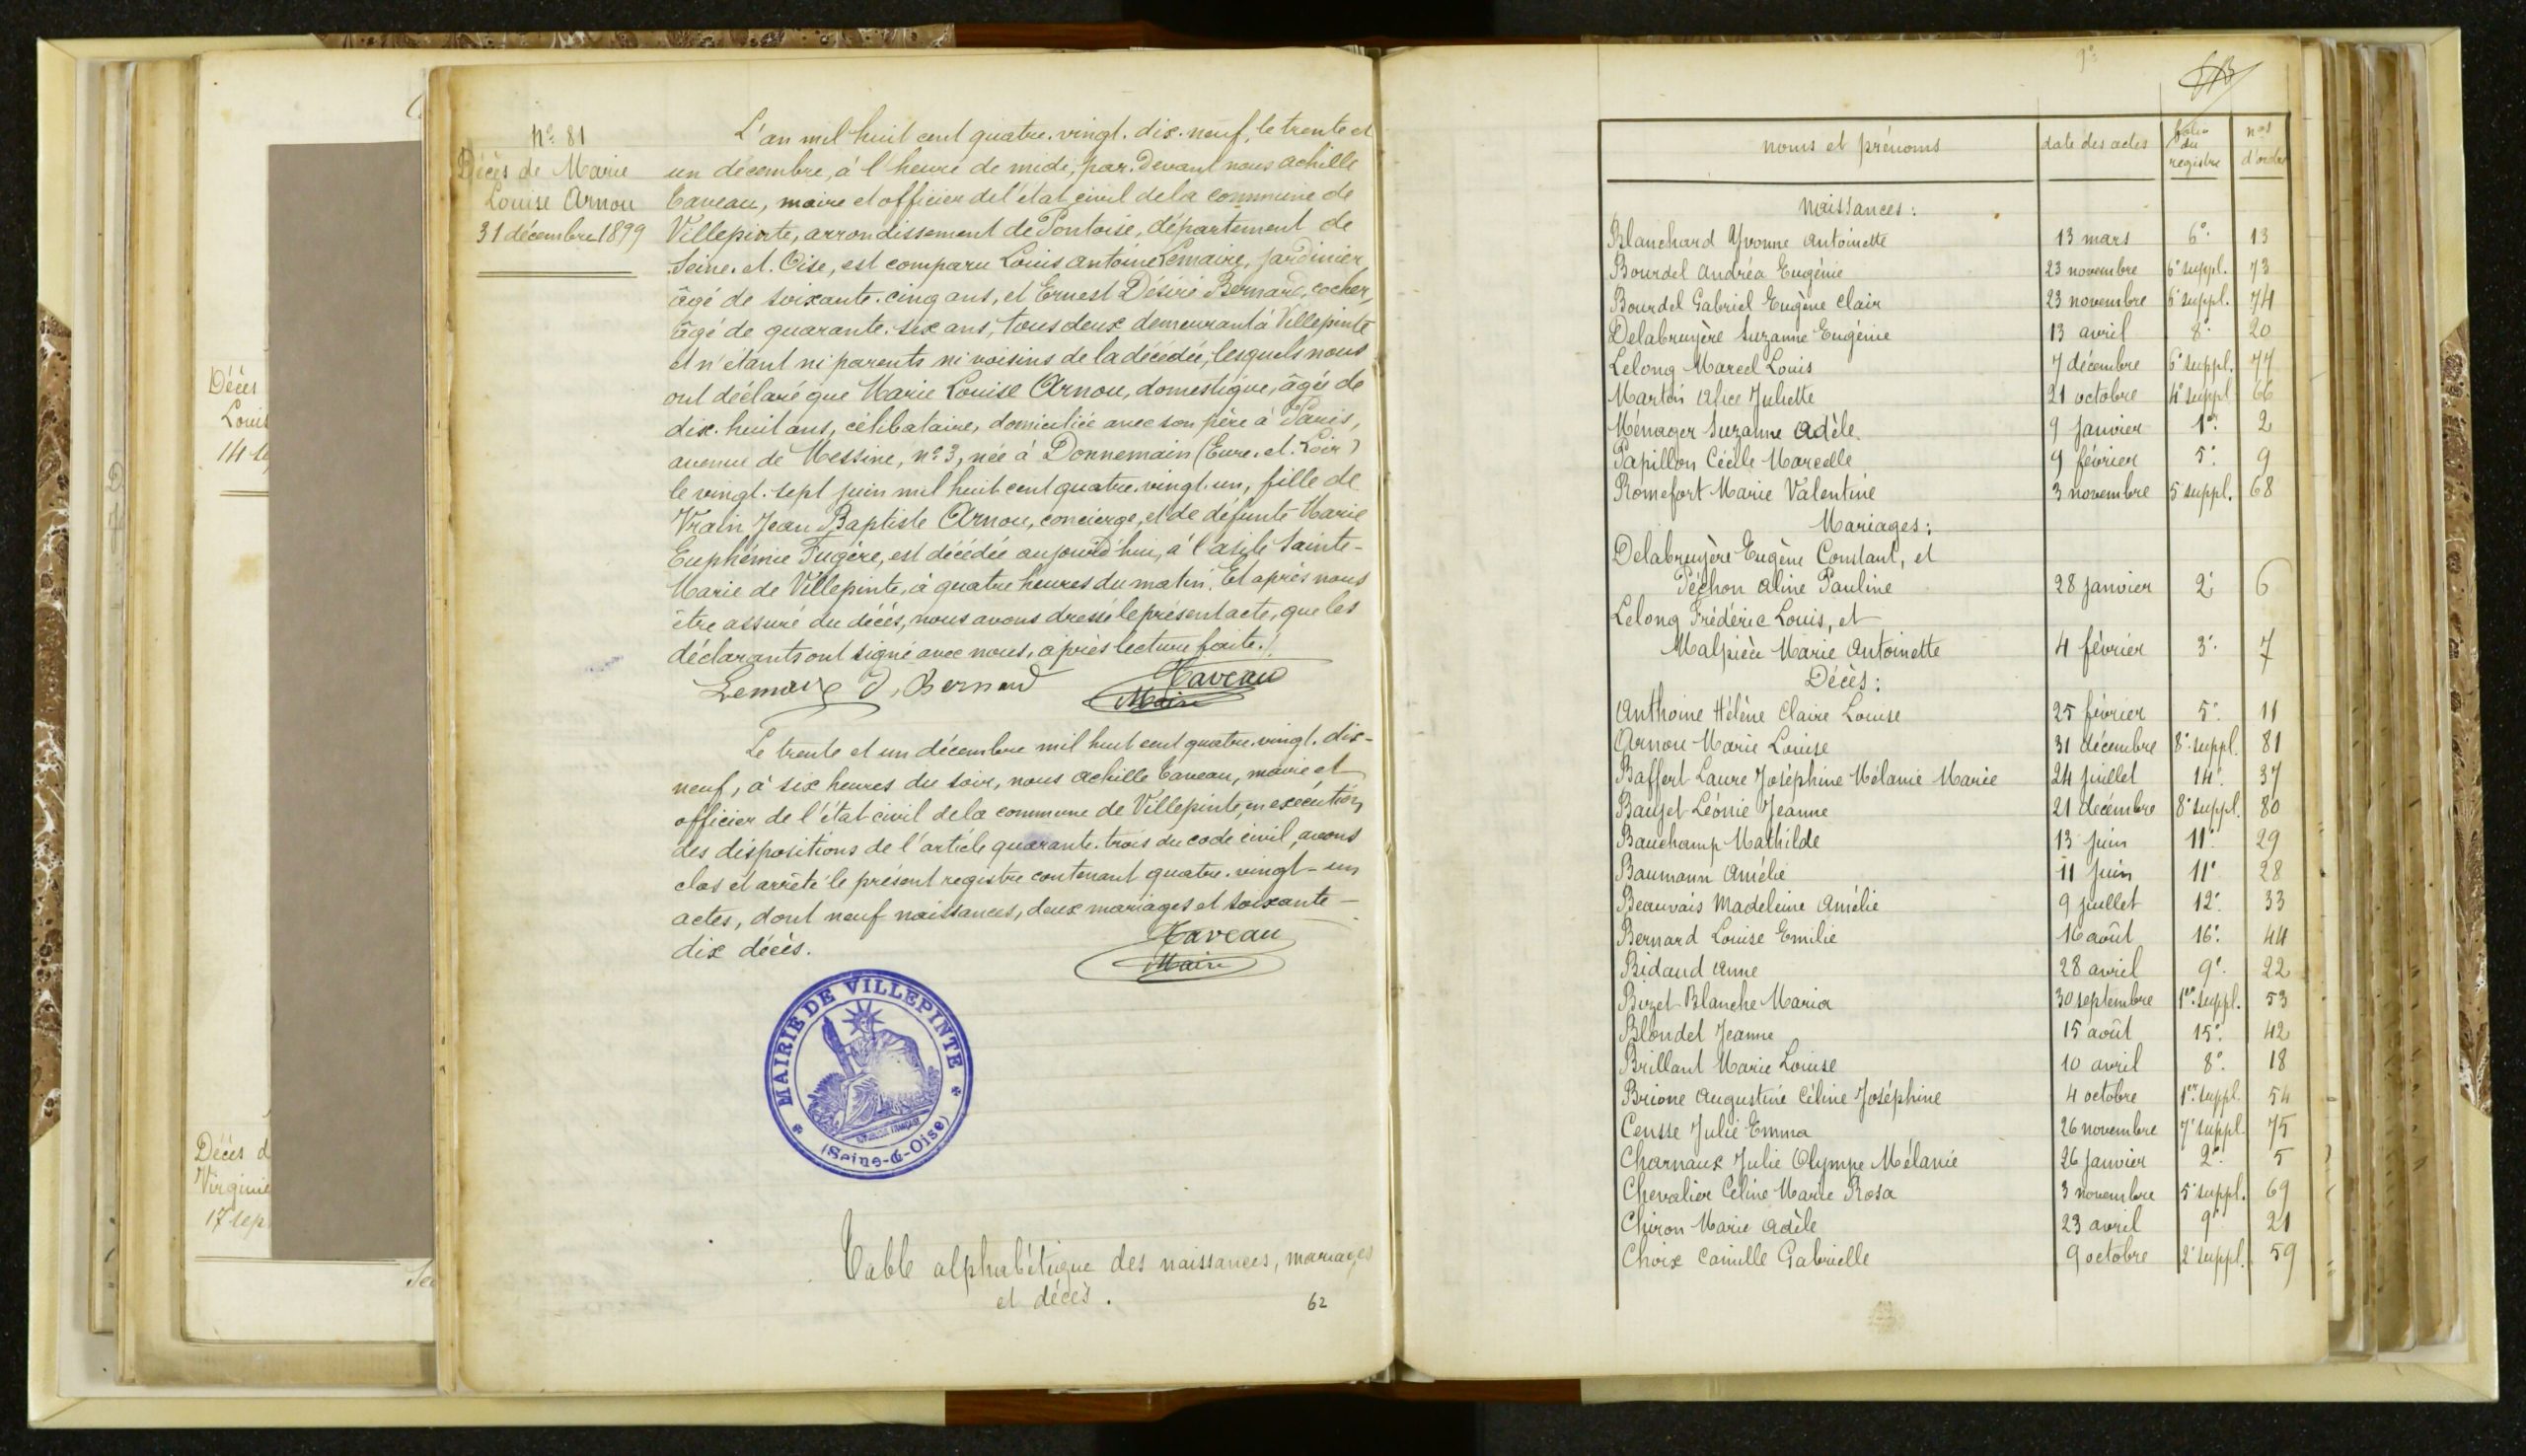 Décès
Louis
14 se
Décès d
Virginie
17 sep
Nº 81
Décès de Marie
Louise Arnou
31 décembre 1899
L'an mil huit cent quatre-vingt-dix-neuf, le trente et
un décembre, à l'heure de midi, par-devant nous achille
Taveau, maire et officier de l'état civil de la commune de
Villepinte, arrondissement de Pontoise, département de
Seine-et-Oise, est comparu Louis Antoine Lemaire, jardinier,
âgé de soixante-cinq ans, et Ernest Désiré Bernard, cocher,
âgé de quarante-six ans, tous deux demeurant à Villepinte
et n'étant ni parents ni voisins de la décédée, lesquels nous
ont déclaré que Marie Louise Arnou, domestique, âgée de
dix-huit ans, célibataire, domiciliée avec son père à Paris,
avenue de Messine, nº 3, née à Donnemain (Eure-et-Loir)
le vingt-sept juin mil huit cent quatre-vingt-un, fille de
Vrain Jean Baptiste Arnou, concierge, et de défunte Marie
Euphémie Fugère, est décédée aujourd'hui, à l'asile Sainte-
Marie de Villepinte, à quatre heures du matin. Et après nous
être assuré du décès, nous avons dressé le présent acte, que les
déclarants ont signé avec nous, après lecture faite.
Lemaire D. Bernard Taveau
Maire
Le trente et un décembre mil huit cent quatre-vingt-dix-
neuf, à six heures du soir, nous achille Taveau, maire et
officier de l'état civil de la commune de Villepinte, en exécution
des dispositions de l'article quarante-trois du code civil, avons
clos et arrêté le présent registre contenant quatre-vingt-un
actes, dont neuf naissances, deux mariages et soixante-
dix décès.
Taveau
Maire
MAIRIE DE VILLEPINTE
(Seine-&-Oise)
Table alphabétique des naissances, mariages
et décès.
62
noms et prénoms date des actes folio du registre nos d'ordre
Naissances:
Blanchard Yvonne Antoinette 13 mars 6º 13
Bourdel Andréa Eugénie 23 novembre 6º suppl. 73
Bourdel Gabriel Eugène Clair 23 novembre 6º suppl. 74
Delabruyère Suzanne Eugénie 13 avril 8º 20
Lelong Marcel Louis 7 décembre 6º suppl. 77
Martin Alice Juliette 21 octobre 4º suppl. 66
Ménager Suzanne Adèle 9 janvier 1er 2
Papillon Cécile Marcelle 9 février 5º 9
Romefort Marie Valentine 3 novembre 5 suppl. 68
Mariages:
Delabruyère Eugène Constant, et
Péchon Aline Pauline 28 janvier 2º 6
Lelong Frédéric Louis, et
Malpièce Marie Antoinette 4 février 3º 7
Décès:
Anthoine Hélène Claire Louise 25 février 5º 11
Arnou Marie Louise 31 décembre 8º suppl. 81
Baffert Laure Joséphine Mélanie Marie 24 juillet 14º 37
Baujet Léonie Jeanne 21 décembre 8º suppl. 80
Bauchamp Mathilde 13 juin 11º 29
Baumann Amélie 11 juin 11º 28
Beauvais Madeleine Amélie 9 juillet 12º 33
Bernard Louise Emilie 16 août 16º 44
Bidaud Anne 28 avril 9º 22
Bizet Blanche Maria 30 septembre 1er suppl. 53
Blondel Jeanne 15 août 15º 42
Brillant Marie Louise 10 avril 8º 18
Brione Augustine Céline Joséphine 4 octobre 1er suppl. 54
Censse Julie Emma 26 novembre 7º suppl. 75
Charnaux Julie Olympe Mélanie 26 janvier 2º 5
Chevalier Céline Marie Rosa 3 novembre 5º suppl. 69
Chiron Marie Adèle 23 avril 9º 21
Choix Camille Gabrielle 9 octobre 2º suppl. 59